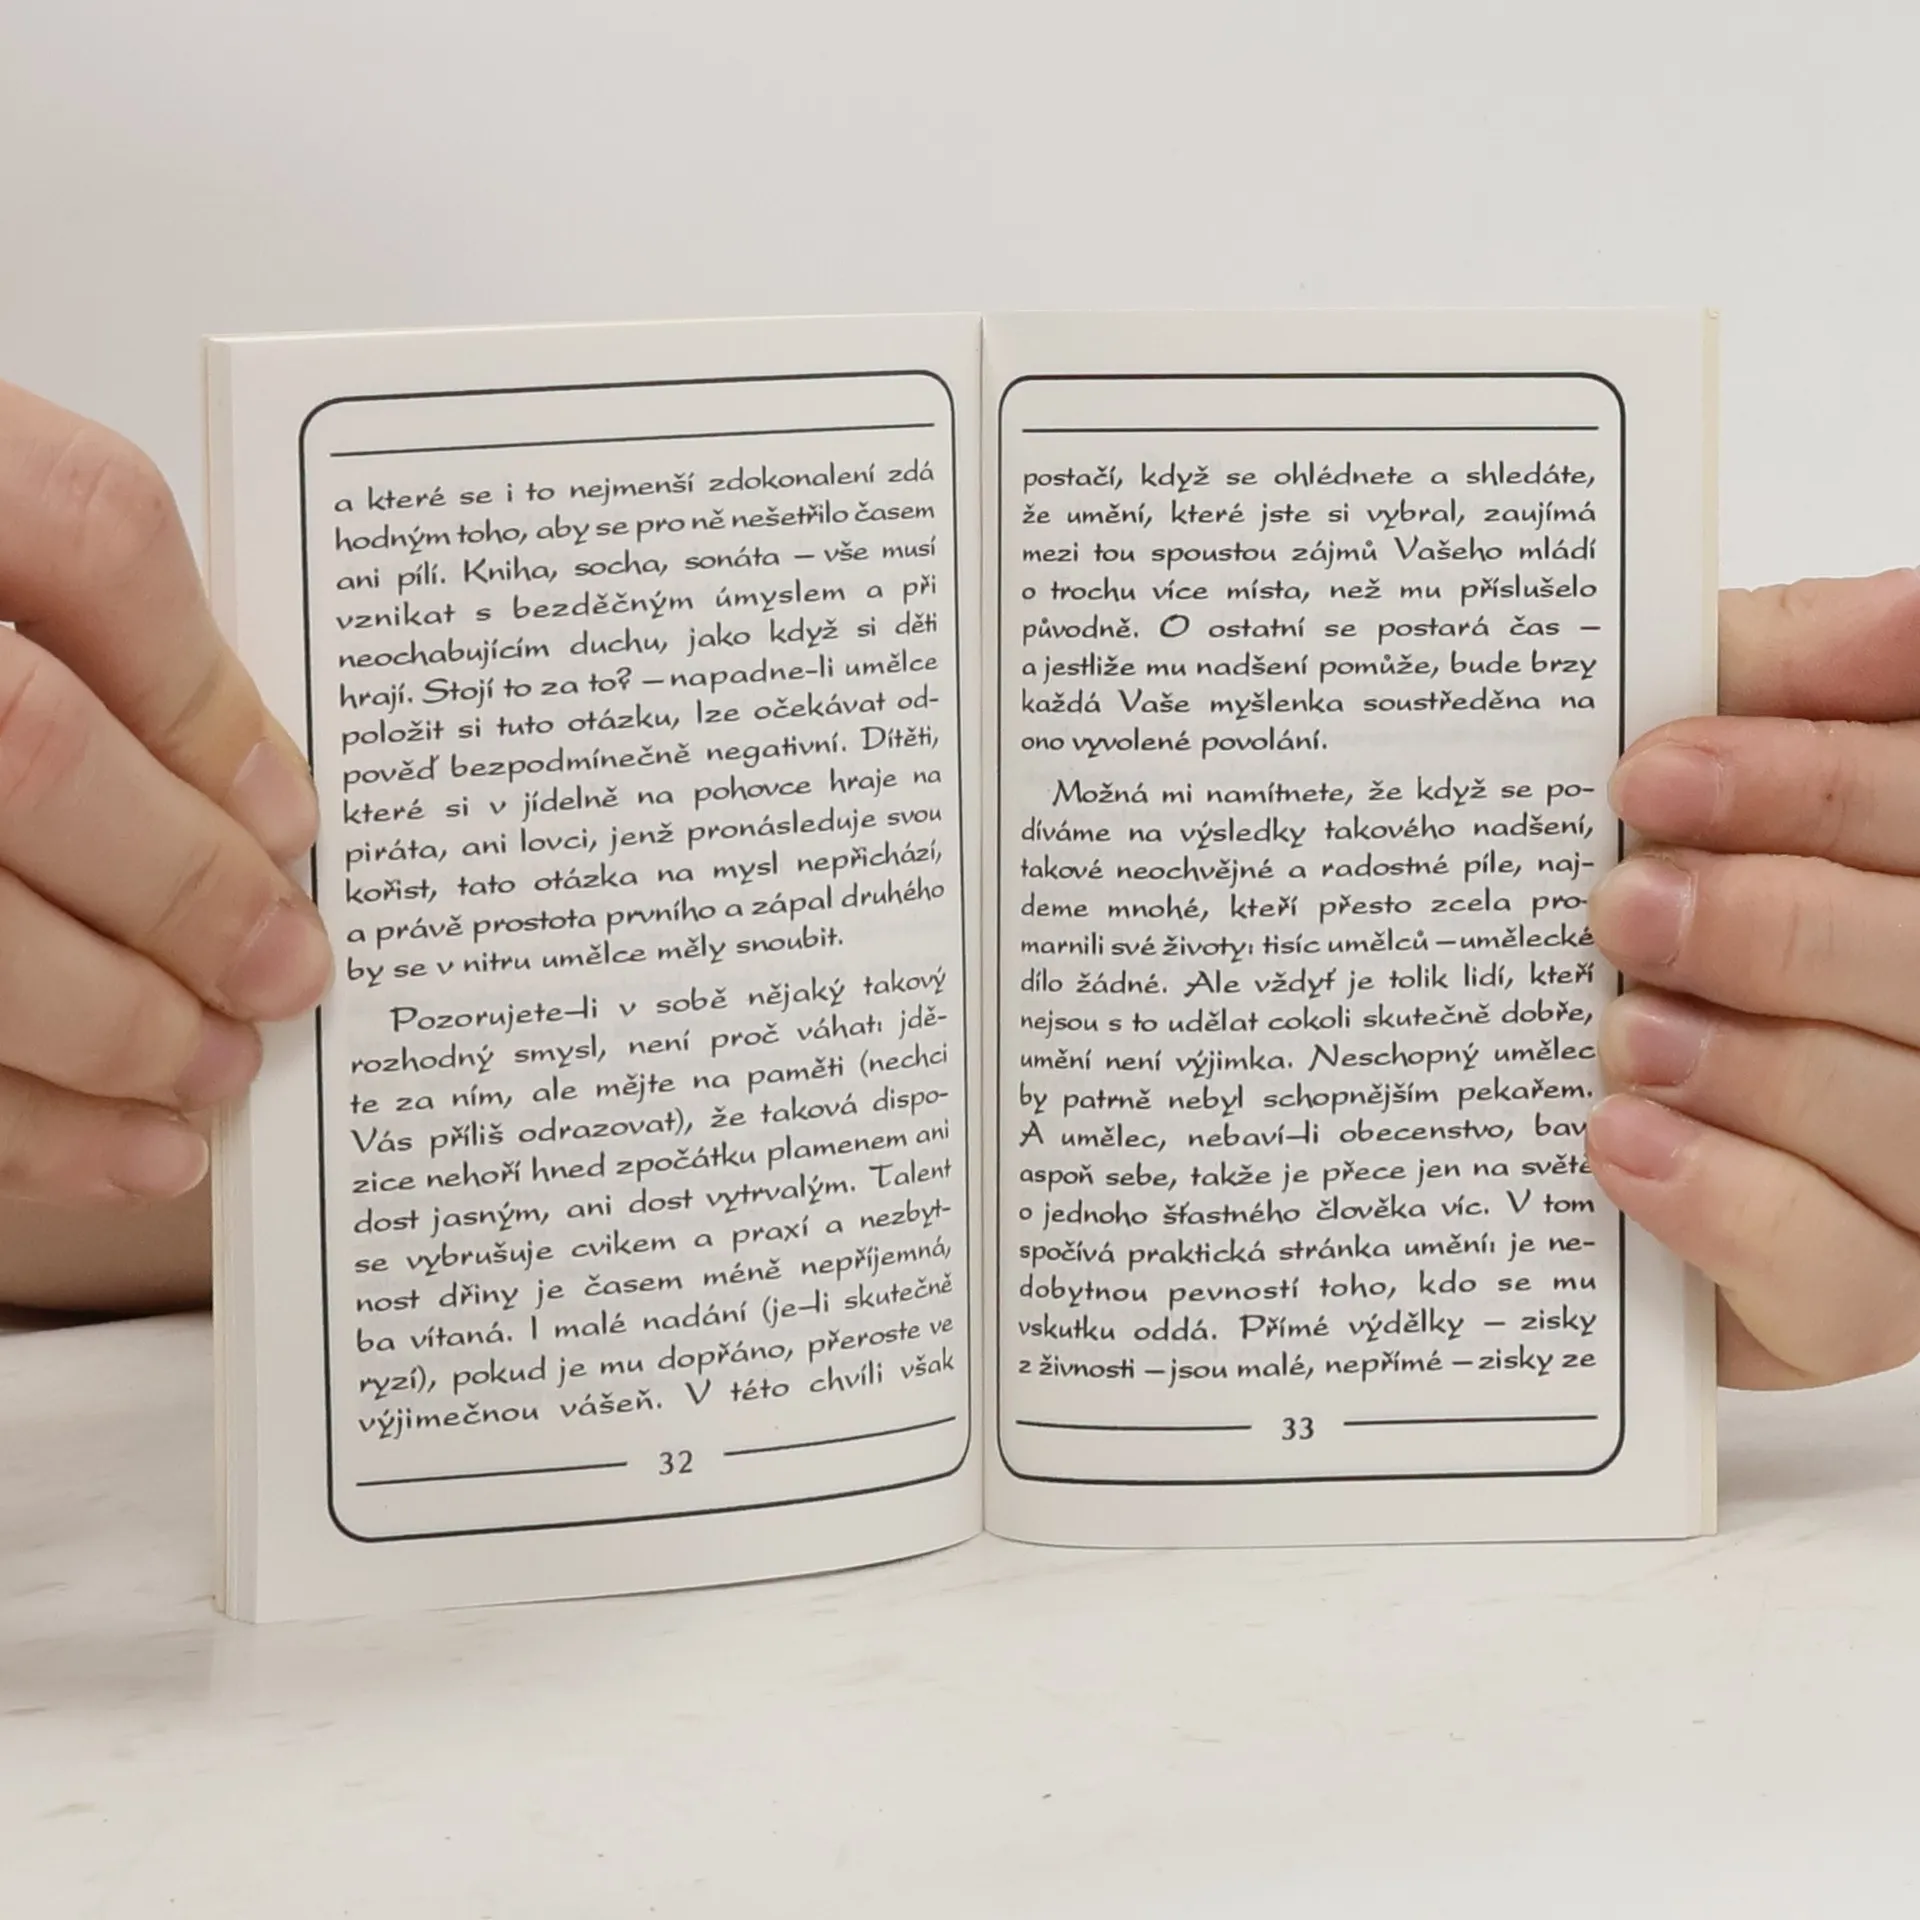 a které se i to nejmenší zdokonalení zdá
hodným toho, aby se pro ně nešetřilo časem
ani pílí. Kniha, socha, sonáta – vše musí
vznikat s bezděčným úmyslem a při
neochabujícím duchu, jako když si děti
hrají. Stojí to za to? – napadne-li umělce
položit si tuto otázku, lze očekávat od-
pověď bezpodmínečně negativní. Dítěti,
které si v jídelně na pohovce hraje na
piráta, ani lovci, jenž pronásleduje svou
kořist, tato otázka na mysl nepřichází,
a právě prostota prvního a zápal druhého
by se v nitru umělce měly snoubit.
Pozorujete-li v sobě nějaký takový
rozhodný smysl, není proč váhat: jdě-
te za ním, ale mějte na paměti (nechci
Vás příliš odrazovat), že taková dispo-
zice nehoří hned zpočátku plamenem ani
dost jasným, ani dost vytrvalým. Talent
se vybrušuje cvikem a praxí a nezbyt-
nost dřiny je časem méně nepříjemná,
ba vítaná. I malé nadání (je-li skutečně
ryzí), pokud je mu dopřáno, přeroste ve
výjimečnou vášeň. V této chvíli však
32
postačí, když se ohlédnete a shledáte,
že umění, které jste si vybral, zaujímá
mezi tou spoustou zájmů Vašeho mládí
o trochu více místa, než mu příslušelo
původně. O ostatní se postará čas –
a jestliže mu nadšení pomůže, bude brzy
každá Vaše myšlenka soustředěna na
ono vyvolené povolání.
Možná mi namítnete, že když se po-
díváme na výsledky takového nadšení,
takové neochvějné a radostné píle, naj-
deme mnohé, kteří přesto zcela pro-
marnili své životy: tisíc umělců – umělecké
dílo žádné. Ale vždyť je tolik lidí, kteří
nejsou s to udělat cokoli skutečně dobře,
umění není výjimka. Neschopný umělec
by patrně nebyl schopnějším pekařem.
A umělec, nebaví-li obecenstvo, baví
aspoň sebe, takže je přece jen na světě
o jednoho šťastného člověka víc. V tom
spočívá praktická stránka umění: je ne-
dobytnou pevností toho, kdo se mu
vskutku oddá. Přímé výdělky – zisky
z živnosti – jsou malé, nepřímé – zisky ze
33